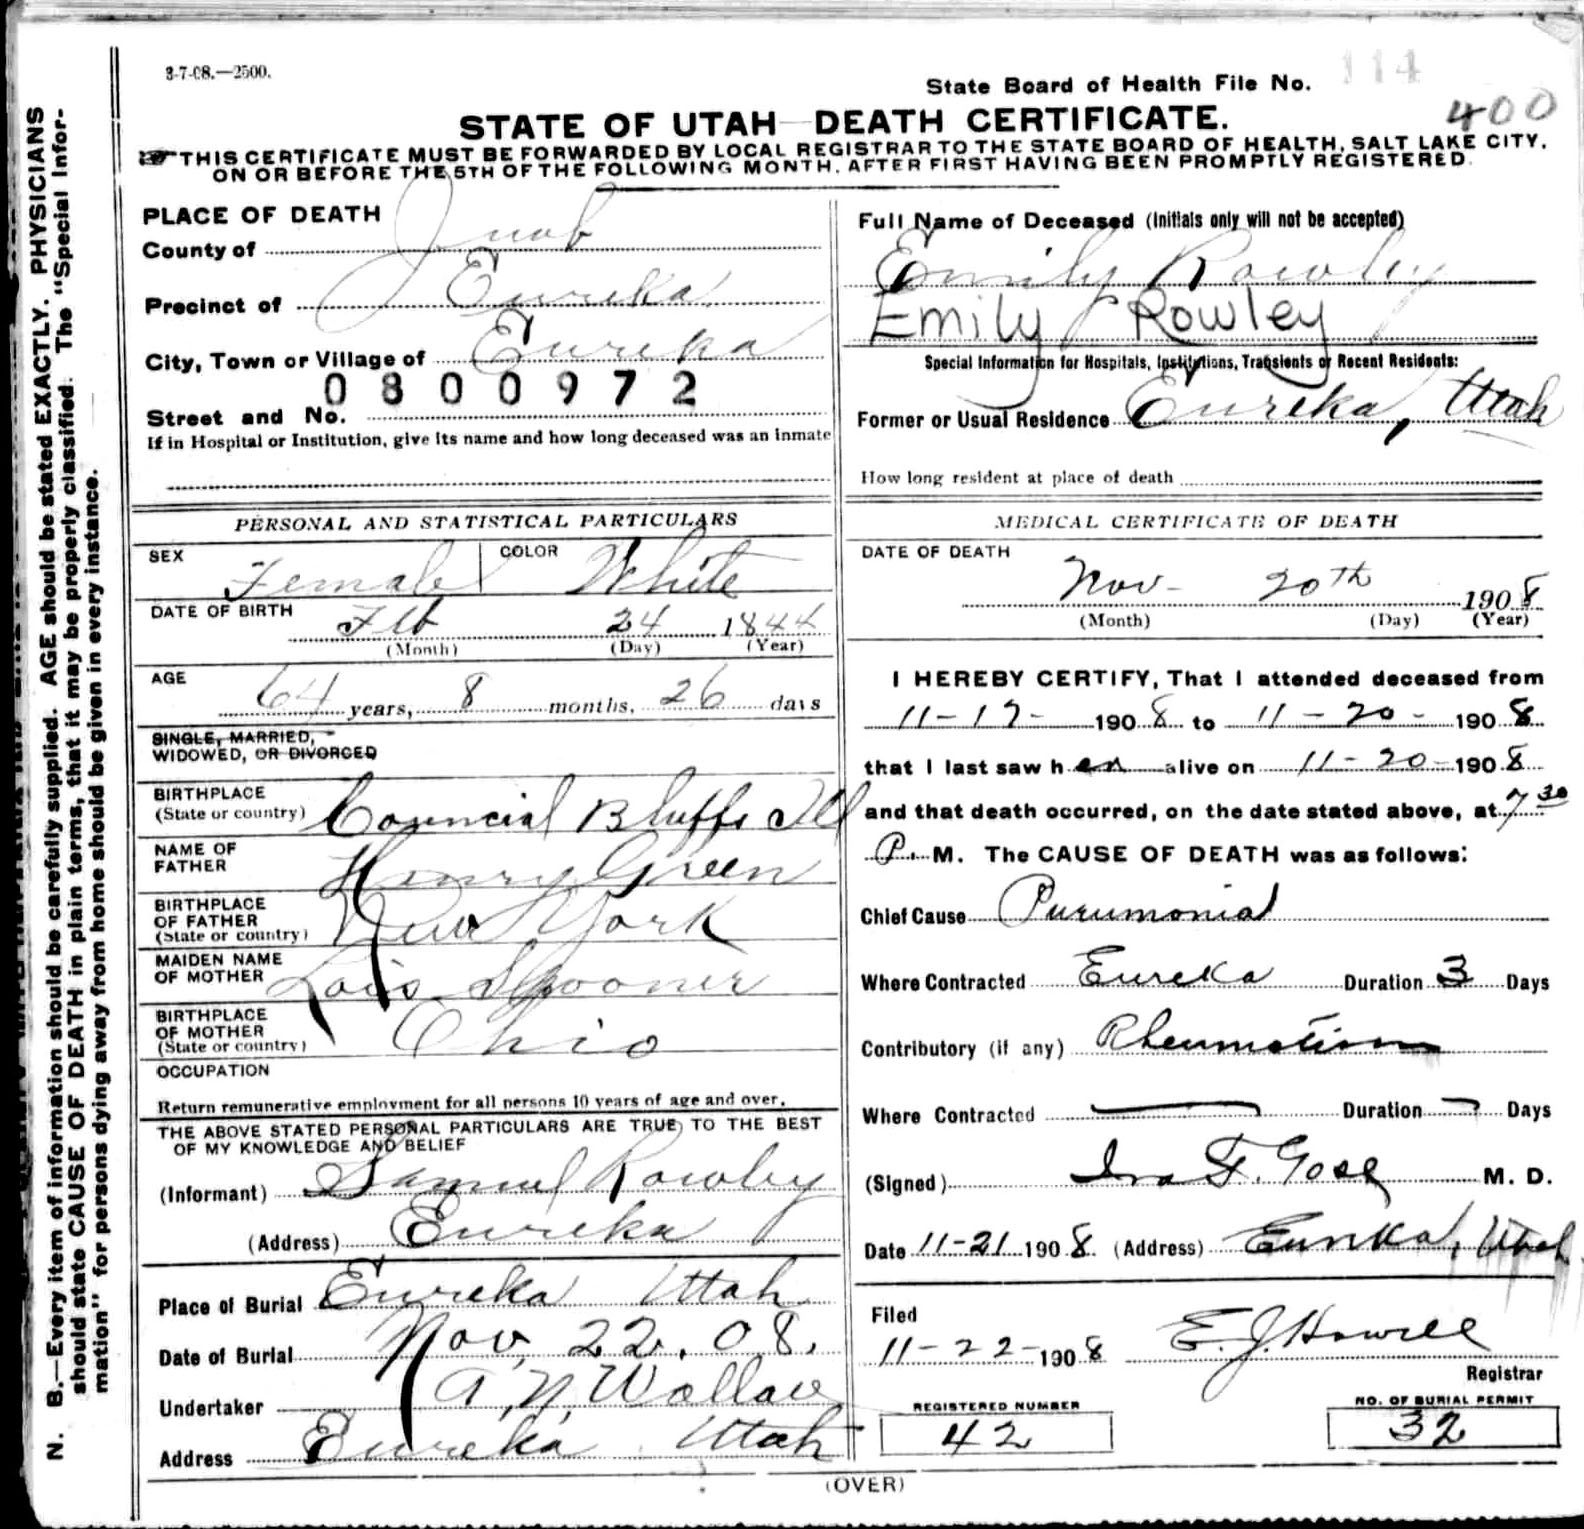 3-7-08.—2500.
State Board of Health File No. 114
400
STATE OF UTAH—DEATH CERTIFICATE.
THIS CERTIFICATE MUST BE FORWARDED BY LOCAL REGISTRAR TO THE STATE BOARD OF HEALTH, SALT LAKE CITY,
ON OR BEFORE THE 5TH OF THE FOLLOWING MONTH, AFTER FIRST HAVING BEEN PROMPTLY REGISTERED.
N. B.—Every item of information should be carefully supplied. AGE should be stated EXACTLY. PHYSICIANS
should state CAUSE OF DEATH in plain terms, that it may be properly classified. The "Special Infor-
mation" for persons dying away from home should be given in every instance.
PLACE OF DEATH
County of Juab
Precinct of Eureka
City, Town or Village of Eureka
0800972
Street and No.
If in Hospital or Institution, give its name and how long deceased was an inmate
PERSONAL AND STATISTICAL PARTICULARS
SEX Female COLOR White
DATE OF BIRTH Feb 24 1844
(Month) (Day) (Year)
AGE
64 years, 8 months, 26 days
SINGLE, MARRIED,
WIDOWED, OR DIVORCED
BIRTHPLACE
(State or country) Councial Bluffs Ill
NAME OF
FATHER Henry Green
BIRTHPLACE
OF FATHER
(State or country) New York
MAIDEN NAME
OF MOTHER Lois Spooner
BIRTHPLACE
OF MOTHER
(State or country) Ohio
OCCUPATION
Return remunerative employment for all persons 10 years of age and over.
THE ABOVE STATED PERSONAL PARTICULARS ARE TRUE TO THE BEST
OF MY KNOWLEDGE AND BELIEF
(Informant) Samuel Rowley
(Address) Eureka
Place of Burial Eureka Utah
Date of Burial Nov, 22, 08.
Undertaker A. N. Wallace
Address Eureka Utah
Full Name of Deceased (Initials only will not be accepted)
Emily Rowley
Emily Rowley
Special Information for Hospitals, Institutions, Transients or Recent Residents:
Former or Usual Residence Eureka, Utah
How long resident at place of death
MEDICAL CERTIFICATE OF DEATH
DATE OF DEATH
Nov- 20th 1908
(Month) (Day) (Year)
I HEREBY CERTIFY, That I attended deceased from
11-17- 1908 to 11-20- 1908
that I last saw her alive on 11-20-1908
and that death occurred, on the date stated above, at 7 30
P. M. The CAUSE OF DEATH was as follows:
Chief Cause Pneumonia
Where Contracted Eureka Duration 3 Days
Contributory (if any) Rheumatism
Where Contracted — Duration — Days
(Signed) Ira F. Gose M. D.
Date 11-21 1908. (Address) Eureka, Utah
Filed
11-22-1908 E. J. Howell
Registrar
REGISTERED NUMBER
42
NO. OF BURIAL PERMIT
32
(OVER)